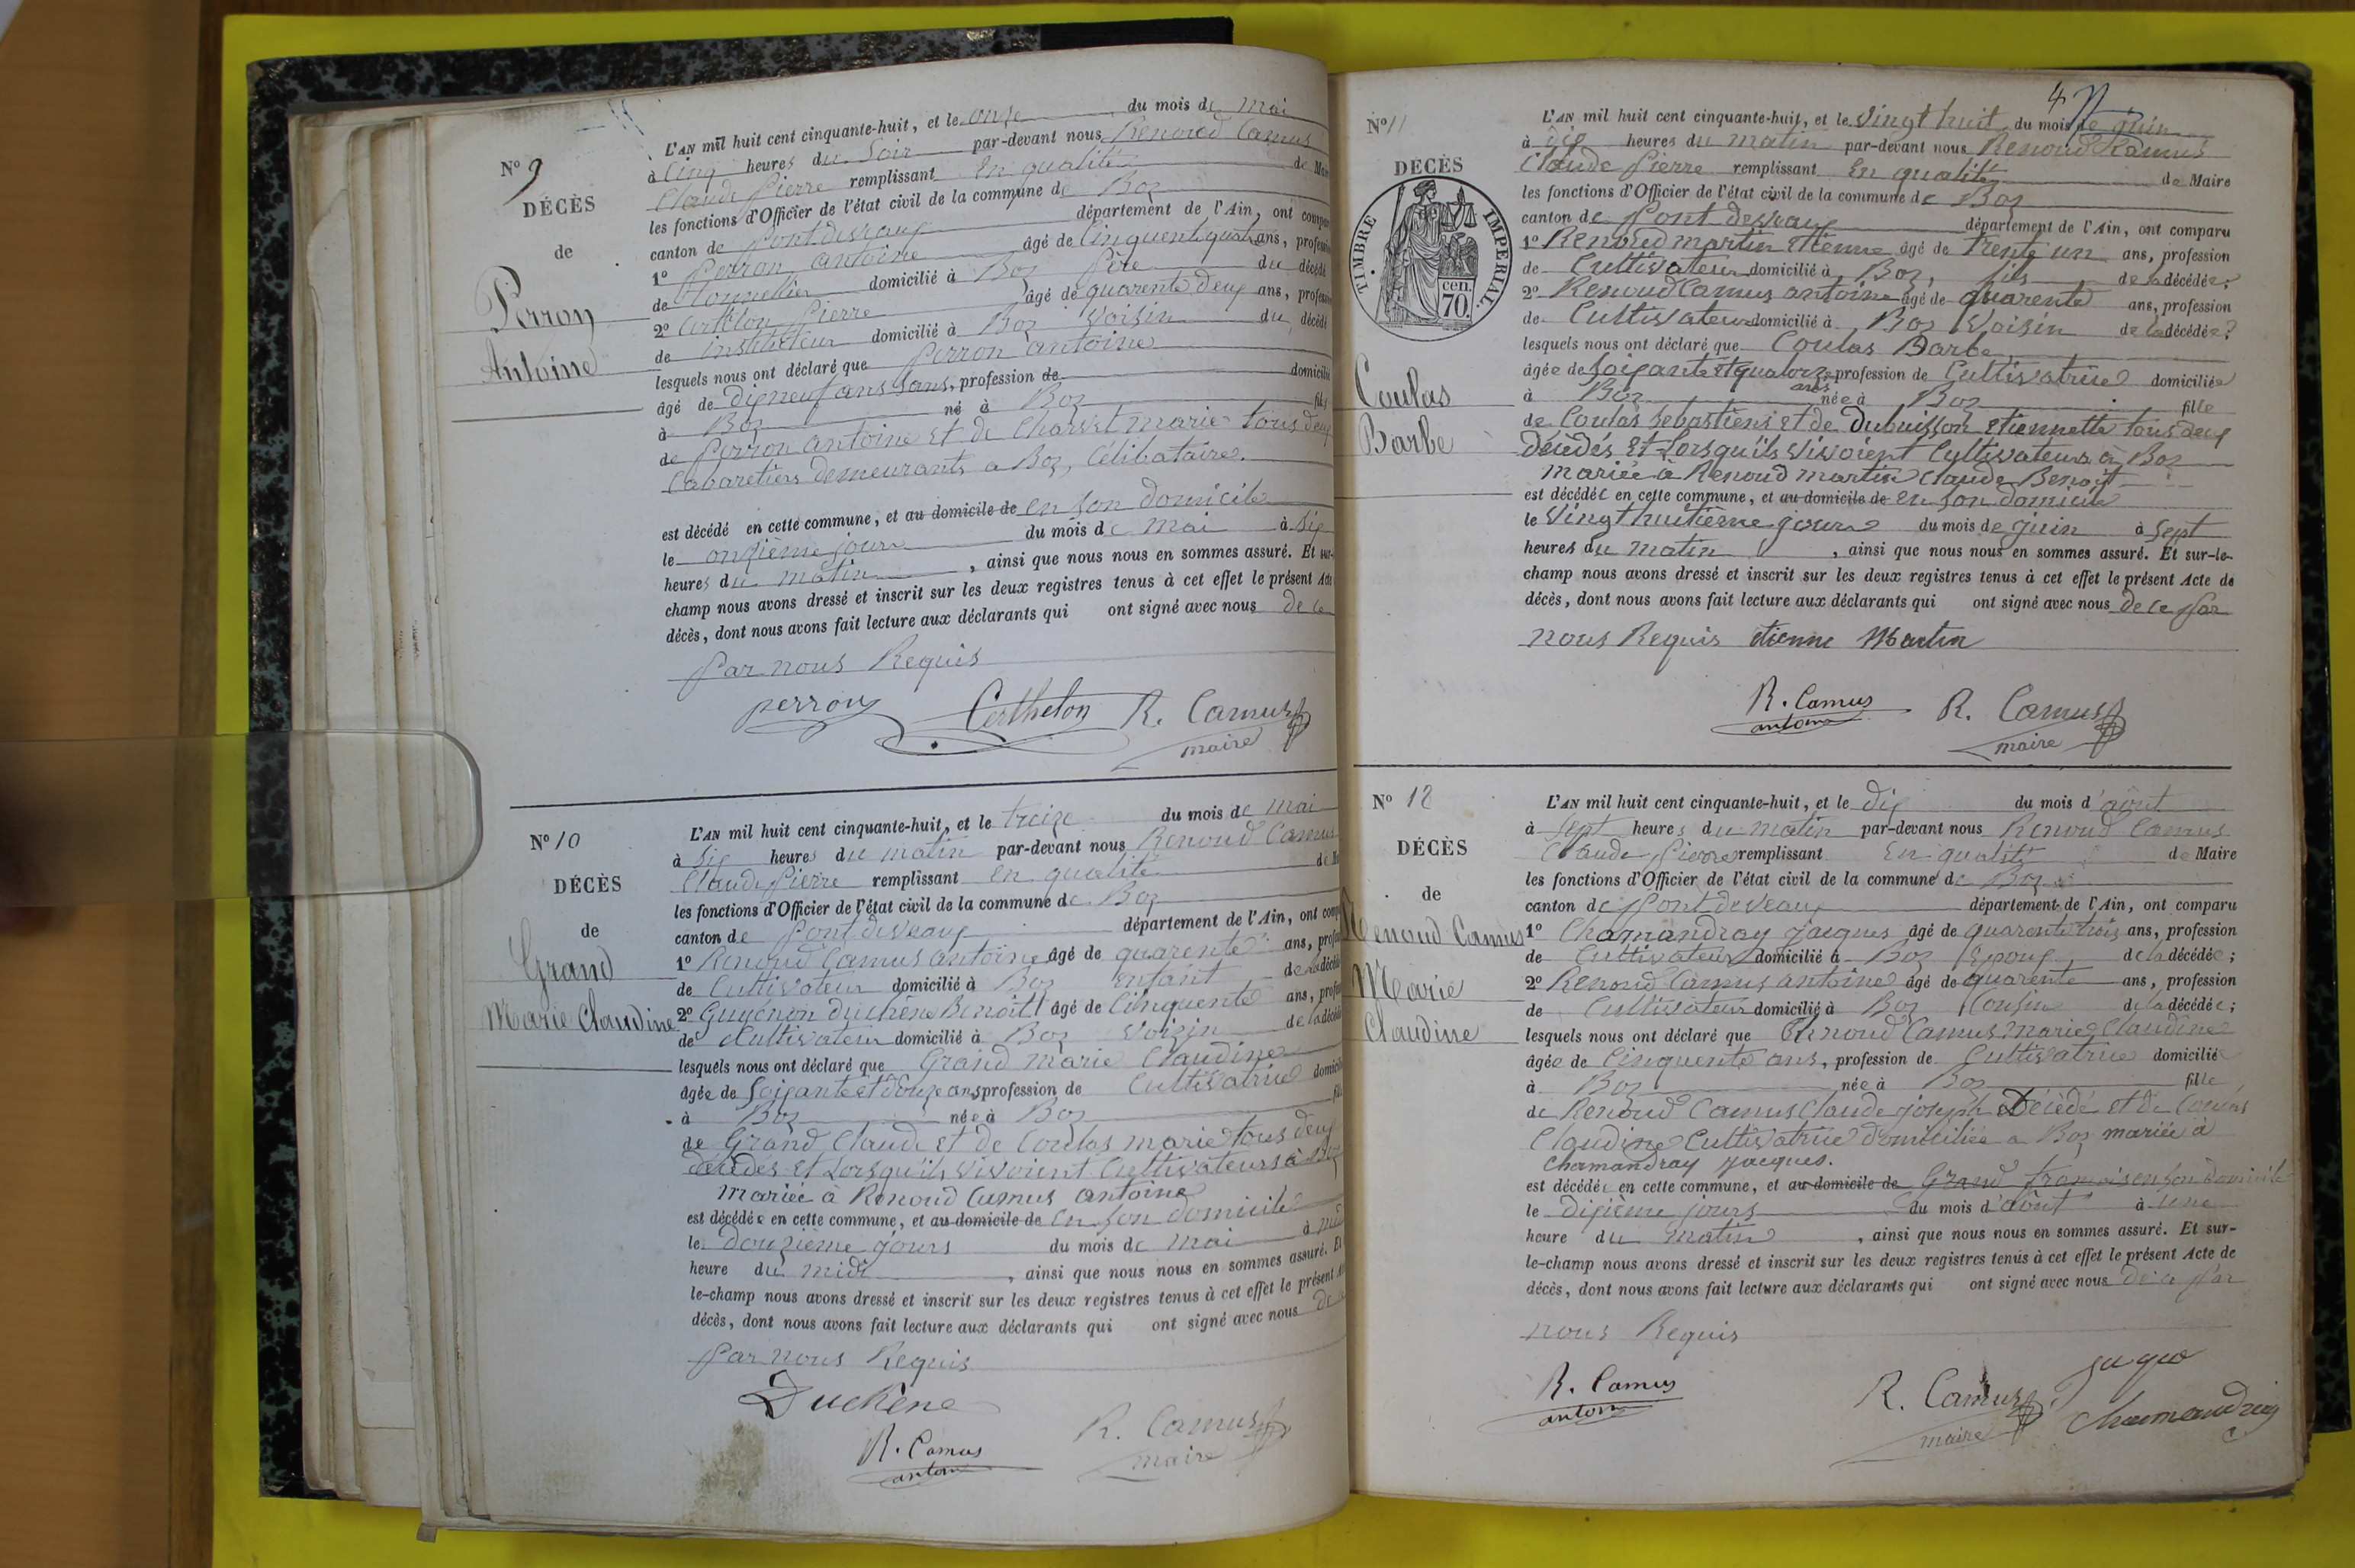 N° 9
DÉCÈS
de
Perron
Antoine
L'AN mil huit cent cinquante-huit, et le onze du mois de mai
à Cinq heures du Soir par-devant nous Renoud Camus
Claude Pierre remplissant En qualité de Mair
les fonctions d'Officier de l'état civil de la commune de Boz
canton de Pontdevaux département de l'Ain, ont compar
1° Perron antoine âgé de Cinquente quatre ans, profession
de tonnellier domicilié à Boz Père du décédé
2° Certhelon Pierre âgé de quarente deux ans, profession
de instituteur domicilié à Boz Voisin du décédé
lesquels nous ont déclaré que Perron antoine
âgé de dixneuf ans Sans, profession de domicilié
à Boz né à Boz fils
de Perron antoine Et de Charvet marie tous deux
Cabaretiers demeurants a Boz, Célibataire.
est décédé en cette commune, et au domicile de en son domicile
le onzième jour du mois de mai à Six
heures du matin, ainsi que nous nous en sommes assuré. Et sur-
champ nous avons dressé et inscrit sur les deux registres tenus à cet effet le présent Acte
décès, dont nous avons fait lecture aux déclarants qui ont signé avec nous de ce
par nous Requis
perron Certhelon R. Camus
maire
N° 10
DÉCÈS
de
Grand
Marie Claudine
L'AN mil huit cent cinquante-huit, et le treize du mois de mai
à Six heures du matin par-devant nous Renoud Camus
Claude Pierre remplissant en qualité de M
les fonctions d'Officier de l'état civil de la commune de Boz
canton de Pontdeveaux département de l'Ain, ont comp
1° Renoud Camus antoine âgé de quarente ans, profes
de Cultivateur domicilié à Boz Enfant de la décéd
2° Guyenon duchêne Benoit âgé de Cinquente ans, profes
de Cultivateur domicilié à Boz Voizin de la décéd
lesquels nous ont déclaré que Grand marie Claudine
âgée de Soixante et douze ans profession de Cultivatrice domicili
à Boz née à Boz fil
de Grand Claude et de Coulas marie tous deux
décédés Et Lorsqu'ils vivoient Cultivateurs à Boz
mariée à Renoud Camus antoine
est décédée en cette commune, et au domicile de En son domicile
le Douzième jours du mois de mai à mi
heure du midi, ainsi que nous nous en sommes assuré. Et
le-champ nous avons dressé et inscrit sur les deux registres tenus à cet effet le présent A
décès, dont nous avons fait lecture aux déclarants qui ont signé avec nous de
par nous Requis
Duchene
R. Camus
antoine
R. Camus
maire
4
N° 11
DÉCÈS
TIMBRE IMPERIAL.
70. cen.
Coulas
Barbe
L'AN mil huit cent cinquante-huit, et le Vingt huit du mois de juin
à dix heures du matin par-devant nous Renoud Camus
Claude Pierre remplissant En qualité de Maire
les fonctions d'Officier de l'état civil de la commune de Boz
canton de Pont deveaux département de l'Ain, ont comparu
1° Renoud martin Etienne âgé de trente un ans, profession
de Cultivateur domicilié à Boz, fils de la décédée;
2° Renoud Camus antoine âgé de quarente ans, profession
de Cultivateur domicilié à Boz Voisin de la décédée;
lesquels nous ont déclaré que Coulas Barbe
âgée de Soixante et quatorze ans profession de Cultivatrice domiciliée
à Boz née à Boz fille
de Coulas Sebastiens et de Dubuisson Etiennette tous deux
décédés Et Lorsqu'ils vivoient Cultivateurs à Boz
mariée à Renoud martin Claude Benoit
est décédée en cette commune, et au domicile de En son domicile
le Vingt huitième jours du mois de juin à Sept
heures du matin, ainsi que nous nous en sommes assuré. Et sur-le-
champ nous avons dressé et inscrit sur les deux registres tenus à cet effet le présent Acte de
décès, dont nous avons fait lecture aux déclarants qui ont signé avec nous de ce par
nous Requis etienne Martin
R. Camus
antoine
R. Camus
maire
N° 12
DÉCÈS
de
Renoud Camus
Marie
Claudine
L'AN mil huit cent cinquante-huit, et le dix du mois d'août
à Sept heures du matin par-devant nous Renoud Camus
Claude Pierre remplissant En qualité de Maire
les fonctions d'Officier de l'état civil de la commune de Boz
canton de Pont deveaux département de l'Ain, ont comparu
1° Chamandray jacques âgé de quarente trois ans, profession
de Cultivateur domicilié à Boz Epoux de la décédée;
2° Renoud Camus antoine âgé de quarente ans, profession
de Cultivateur domicilié à Boz Cousin de la décédée;
lesquels nous ont déclaré que Renoud Camus Marie Claudine
âgée de Cinquente ans, profession de Cultivatrice domicilié
à Boz née à Boz fille
de Renoud Camus Claude joseph Décédé et de Coulas
Claudine Cultivatrice domiciliée a Boz mariée à
Chamandray jacques.
est décédée en cette commune, et au domicile de Grand francois en son domicile
le dixième jours du mois d'août à une
heure du matin, ainsi que nous nous en sommes assuré. Et sur-
le-champ nous avons dressé et inscrit sur les deux registres tenus à cet effet le présent Acte de
décès, dont nous avons fait lecture aux déclarants qui ont signé avec nous de ce par
nous Requis
R. Camus
antoine
R. Camus
maire
jaque
chamandray